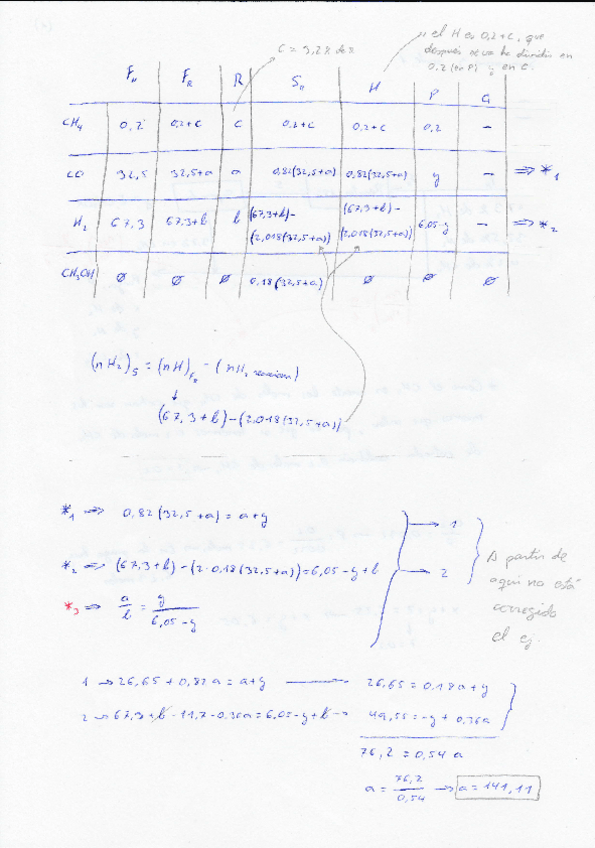 C = 3,2% de R
el H es 0,2+C, que
después se va ha dividir en
0,2 (en P) y en C.
Fn FR R Sn H P G
CH4 0,2 0,2+C C 0,2+C 0,2+C 0,2 -
CO 32,5 32,5+a a 0,82(32,5+a) 0,82(32,5+a) y - ⇒ *1
H2 67,3 67,3+b b (67,3+b)-(2·0,18(32,5+a)) (67,3+b)-(2·0,18(32,5+a)) 6,05-y - ⇒ *2
CH3OH Ø Ø Ø 0,18(32,5+a) Ø Ø Ø
(nH2)S = (nH)FR - (nH2 reaccionan)
↓
(67,3+b)-(2·0,18(32,5+a))
*1 ⇒ 0,82(32,5+a) = a+y → 1
*2 ⇒ (67,3+b)-(2·0,18(32,5+a)) = 6,05-y+b → 2
*3 ⇒ a/b = y/(6,05-y)
A partir de
aquí no está
corregido
el ej.
1 → 26,65 + 0,82a = a+y → 26,65 = 0,18a+y
2 → 67,3+b-11,7-0,36a = 6,05-y+b → 49,55 = -y+0,36a
76,2 = 0,54 a
a = 76,2/0,54 → a = 141,11